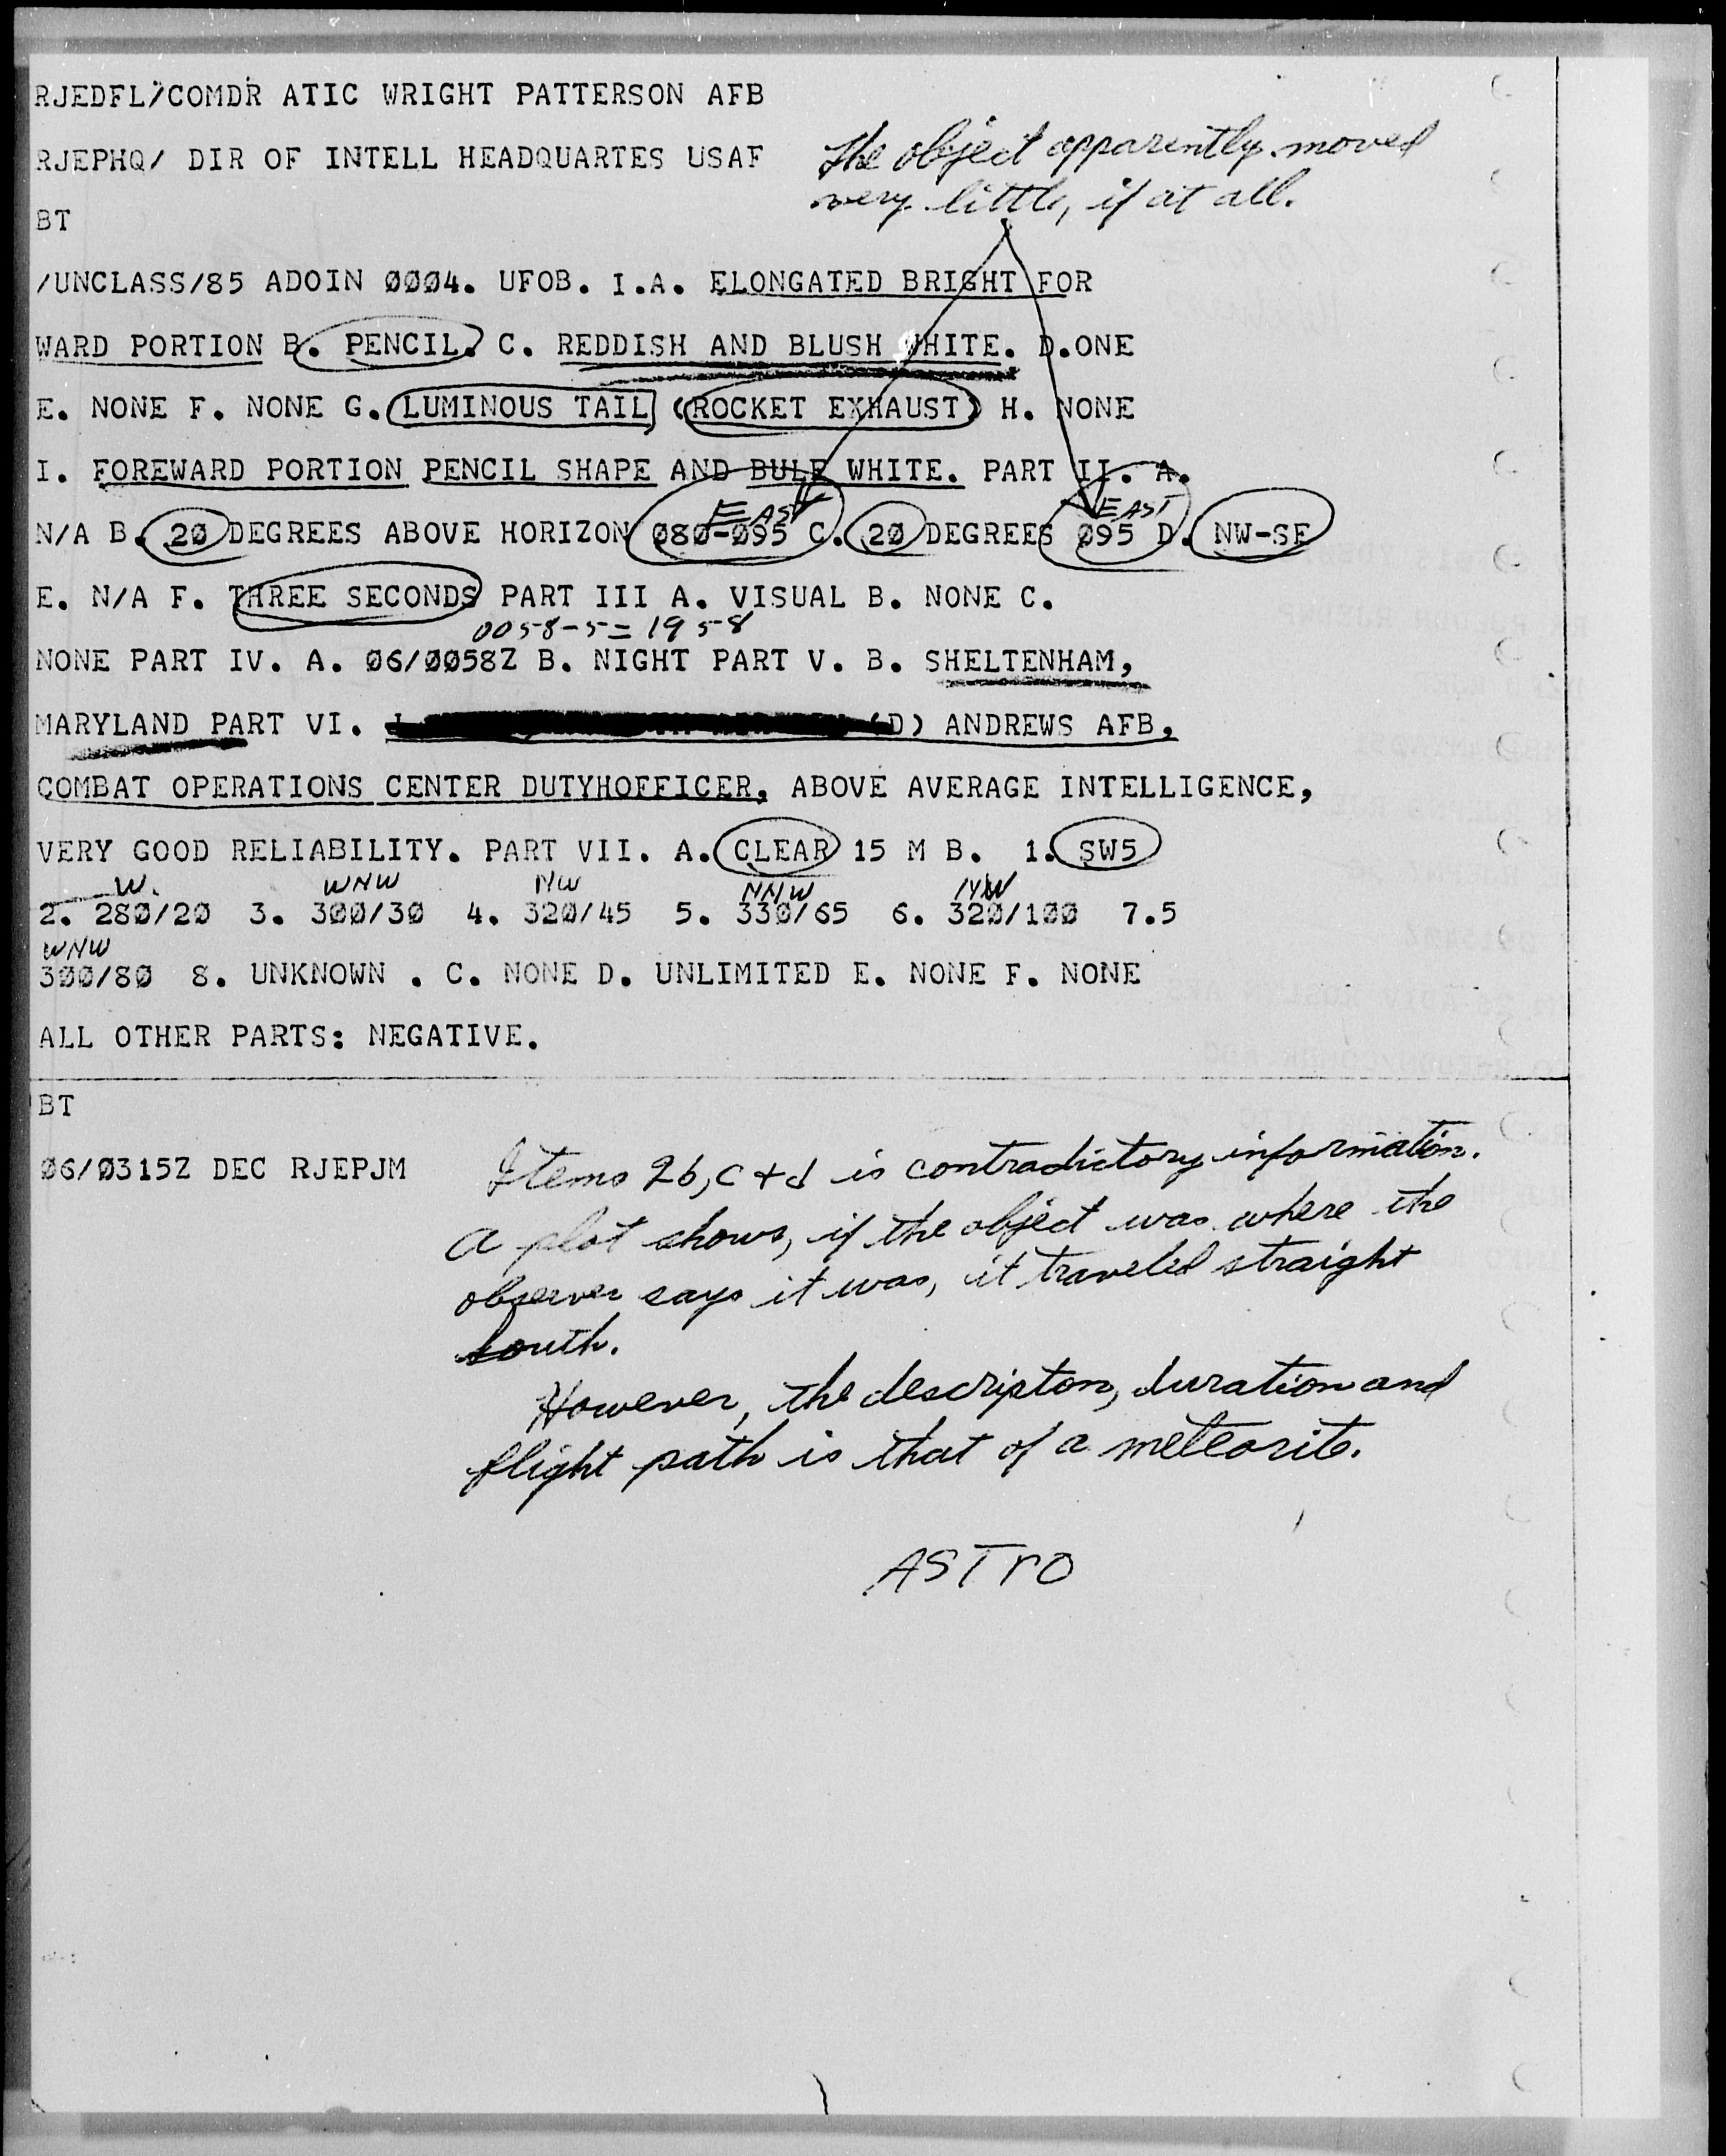 RJEDFL/COMDR ATIC WRIGHT PATTERSON AFB
RJEPHQ/ DIR OF INTELL HEADQUARTES USAF
The object apparently moved
very little, if at all.
BT
/UNCLASS/85 ADOIN 0004. UFOB. I.A. ELONGATED BRIGHT FOR
WARD PORTION B. PENCIL. C. REDDISH AND BLUSH WHITE. D.ONE
E. NONE F. NONE G. LUMINOUS TAIL (ROCKET EXHAUST) H. NONE
I. FOREWARD PORTION PENCIL SHAPE AND BULE WHITE. PART II. A.
EAST EAST
N/A B. 20 DEGREES ABOVE HORIZON 080-095 C. 20 DEGREES 095 D. NW-SE
E. N/A F. THREE SECONDS PART III A. VISUAL B. NONE C.
0058-5=1958
NONE PART IV. A. 06/0058Z B. NIGHT PART V. B. SHELTENHAM,
MARYLAND PART VI. (D) ANDREWS AFB,
COMBAT OPERATIONS CENTER DUTYHOFFICER, ABOVE AVERAGE INTELLIGENCE,
VERY GOOD RELIABILITY. PART VII. A. CLEAR 15 M B. 1. SW5
W. WNW NW NNW NW
2. 280/20 3. 300/30 4. 320/45 5. 330/65 6. 320/100 7.5
WNW
300/80 8. UNKNOWN . C. NONE D. UNLIMITED E. NONE F. NONE
ALL OTHER PARTS: NEGATIVE.
BT
06/0315Z DEC RJEPJM
Items 2b, c + d is contradictory information.
A plot shows, if the object was where the
observer says it was, it traveled straight
south.
However, the descripton, duration and
flight path is that of a meteorite.
ASTrO